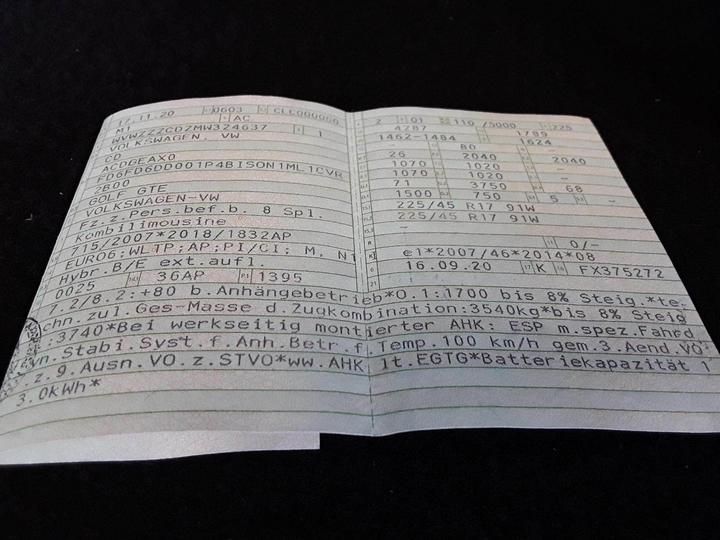 17.11.20 0603 CLE000060
M1 AC
WVWZZZCDZMW324637 1
VOLKSWAGEN, VW
CD
ACDGEAX0
FD6FD6DD001P4BISON1ML1CVR
2B00
GOLF GTE
VOLKSWAGEN-VW
Fz.z.Pers.bef.b. 8 Spl.
Kombilimousine
715/2007*2018/1832AP
EURO6;WLTP;AP;PI/CI; M, N1
Hybr.B/E ext.aufl.
0025 36AP 1395
2 01 110 /5000 225
4287 1789
1462-1484 1624
80
26 2040 2040
1070 1020 -
1070 1020 -
71 3750 68
1500 750 5 -
225/45 R17 91W
225/45 R17 91W
-
0/-
e1*2007/46*2014*08
16.09.20 K FX375272
7.2/8.2:+80 b.Anhängebetrieb*O.1:1700 bis 8% Steig.*te
chn.zul.Ges-Masse d.Zugkombination:3540kg*bis 8% Steig
:3740*Bei werkseitig montierter AHK: ESP m.spez.Fahrd
yn.Stabi.Syst.f.Anh.Betr.f.Temp.100 km/h gem.3.Aend.VO
.z.9.Ausn.VO.z.STVO*ww.AHK lt.EGTG*Batteriekapazität 1
3.0kWh*